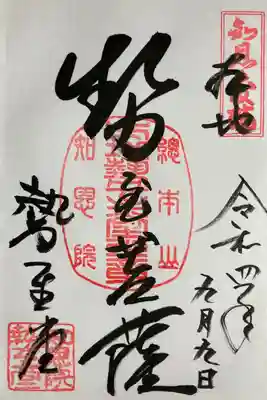 本地
令和四年
五月九日
勢至菩薩
總本山
知恩院
勢至堂